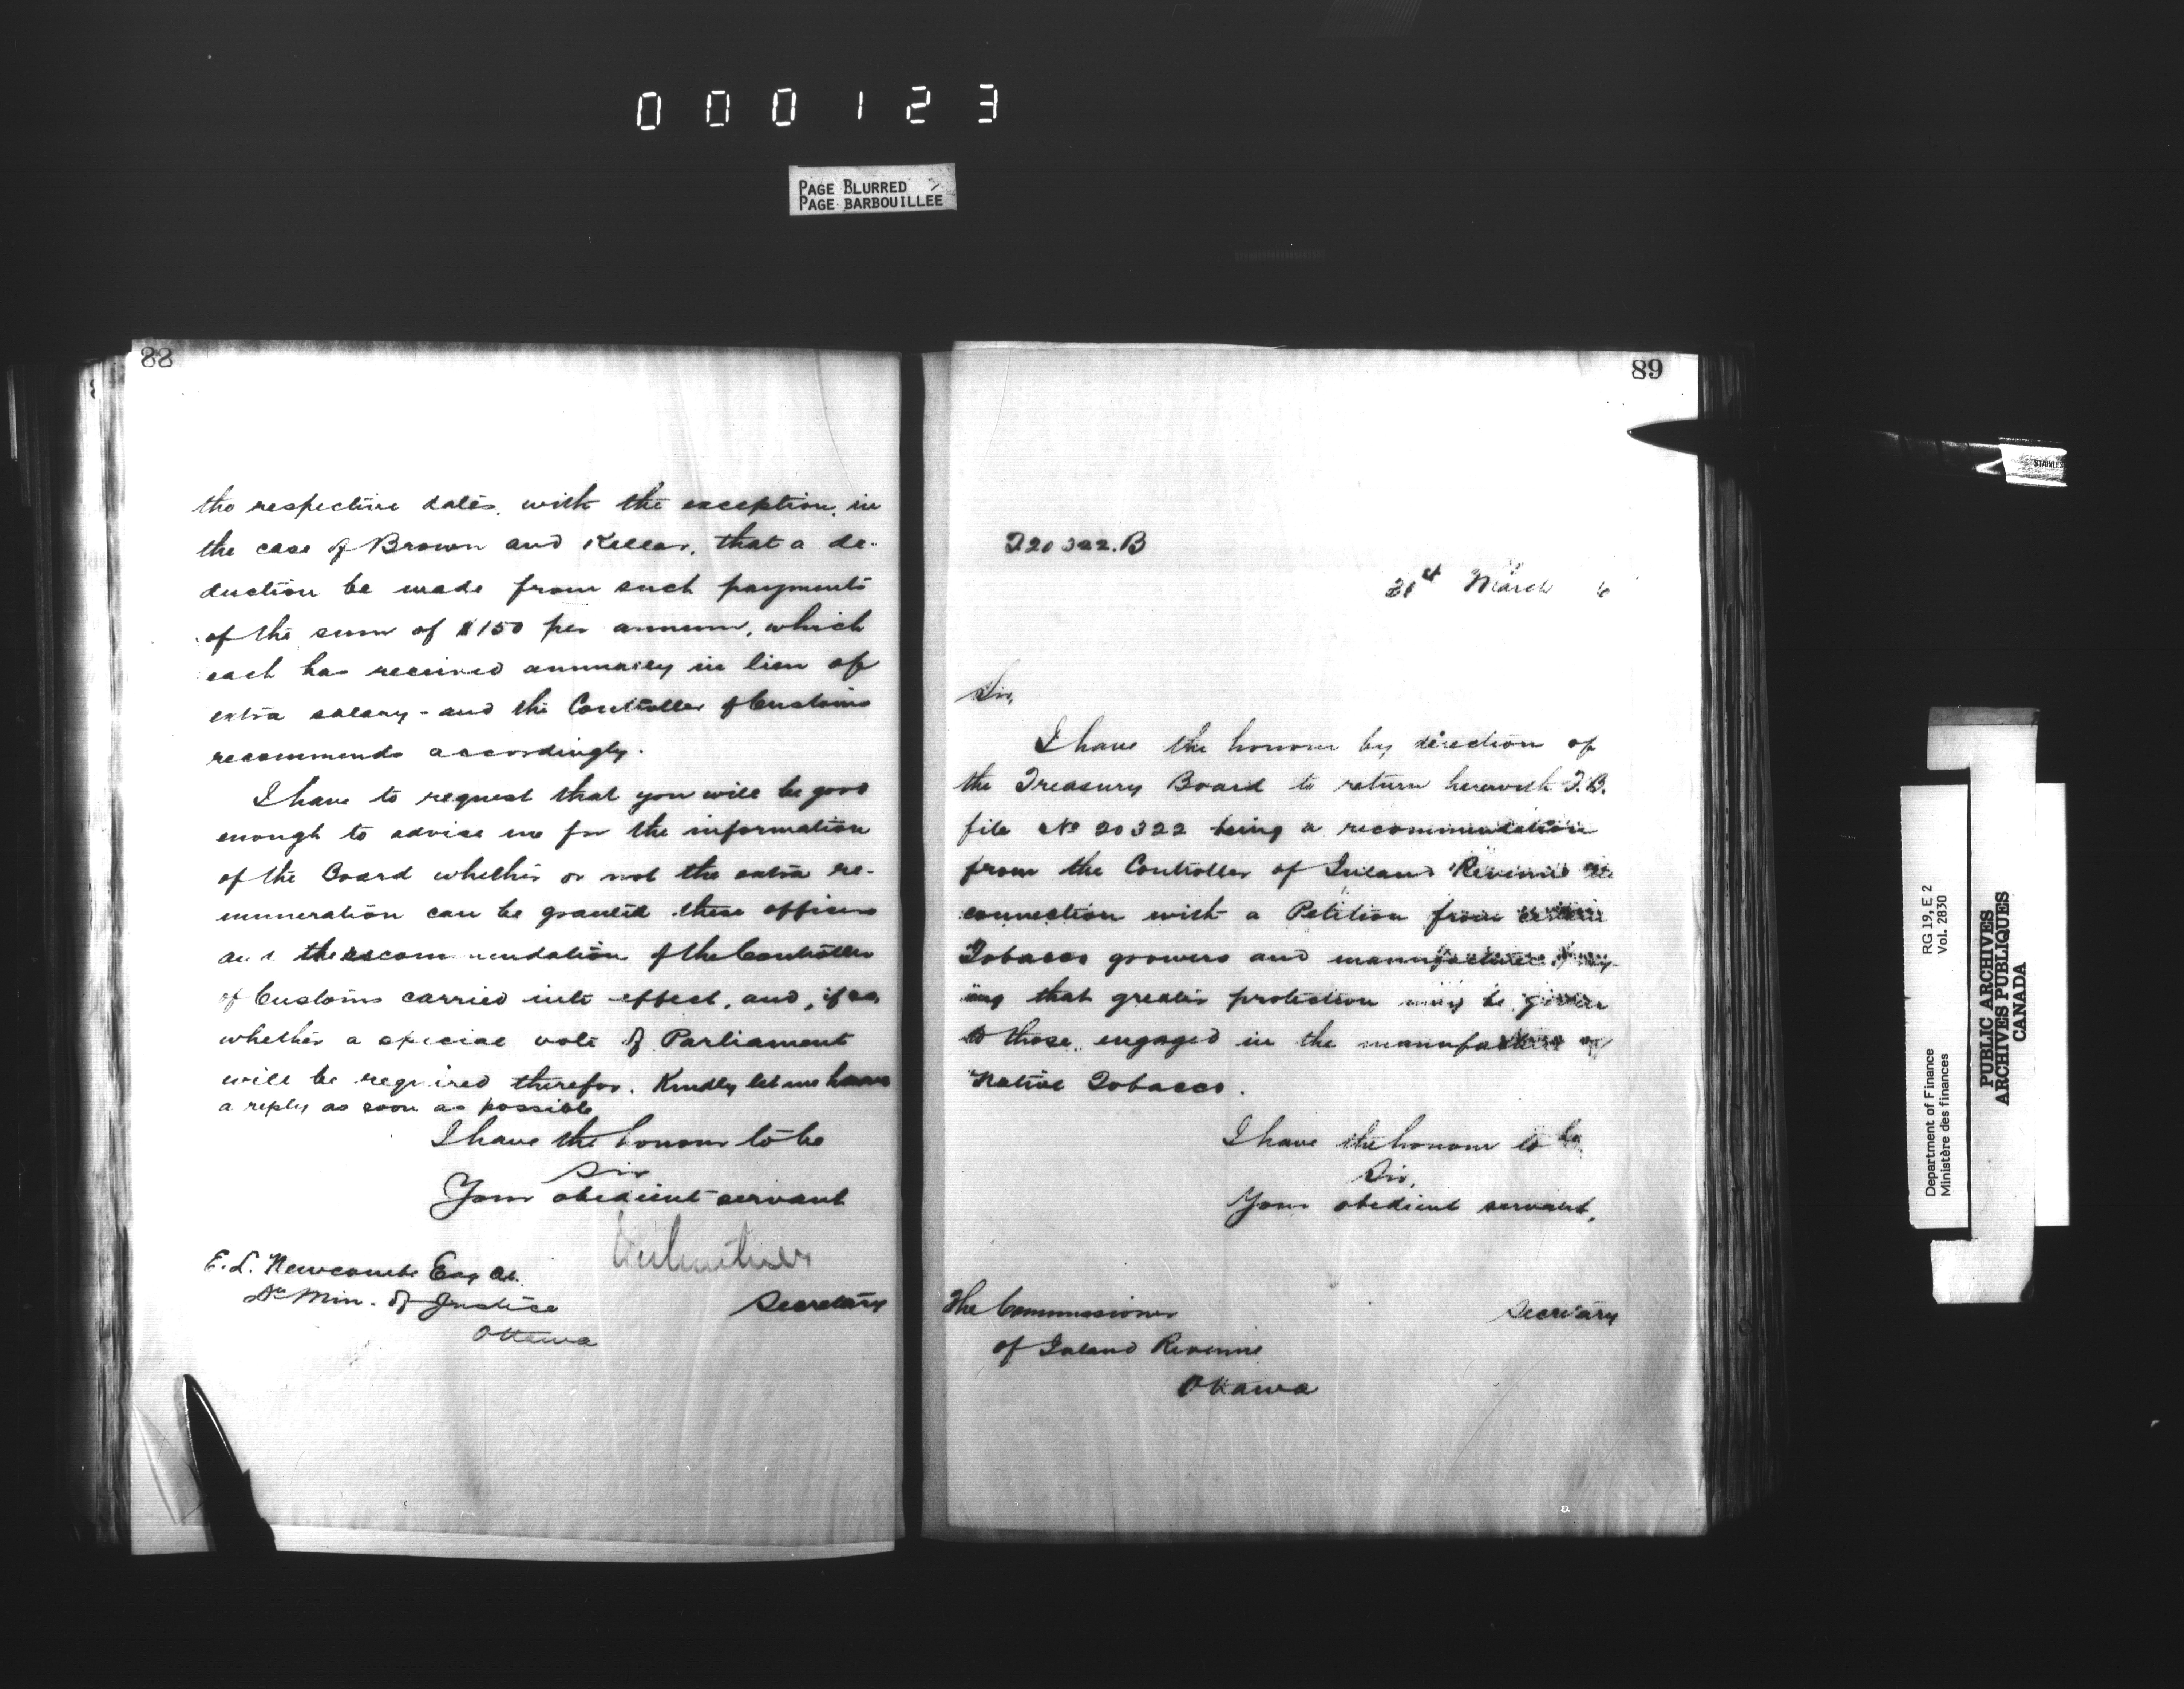 000123
PAGE BLURRED
PAGE BARBOUILLÉE
88
the respective dates, with the exception, in
the case of Brown and Keller, that a de-
duction be made from such payments
of the sum of $150 per annum, which
each has received annually in lieu of
extra salary - and the Controller of Customs
recommends accordingly.
I have to request that you will be good
enough to advise me for the information
of the Board whether or not the extra re-
muneration can be granted these officers
and the recommendation of the Controller
of Customs carried into effect, and, if so,
whether a special vote of Parliament
will be required therefor. Kindly let me have
a reply as soon as possible
I have the honour to be
Sir
Your obedient servant
E. L. Newcombe Esq
Dy Min. of Justice
Ottawa
Secretary
89
T 20322. B
31st March 6
Sir,
I have the honour by direction of
the Treasury Board to return herewith T.B.
file No 20322 being a recommendation
from the Controller of Inland Revenue in
connection with a Petition from certain
Tobacco growers and manufacturers pray-
ing that greater protection may be given
to those engaged in the manufacture of
Native Tobacco.
I have the honour to be
Sir,
Your obedient servant,
Secretary
The Commissioner
of Inland Revenue
Ottawa
STAINLES
RG 19, E 2
Vol. 2830
Department of Finance
Ministère des finances
PUBLIC ARCHIVES
ARCHIVES PUBLIQUES
CANADA